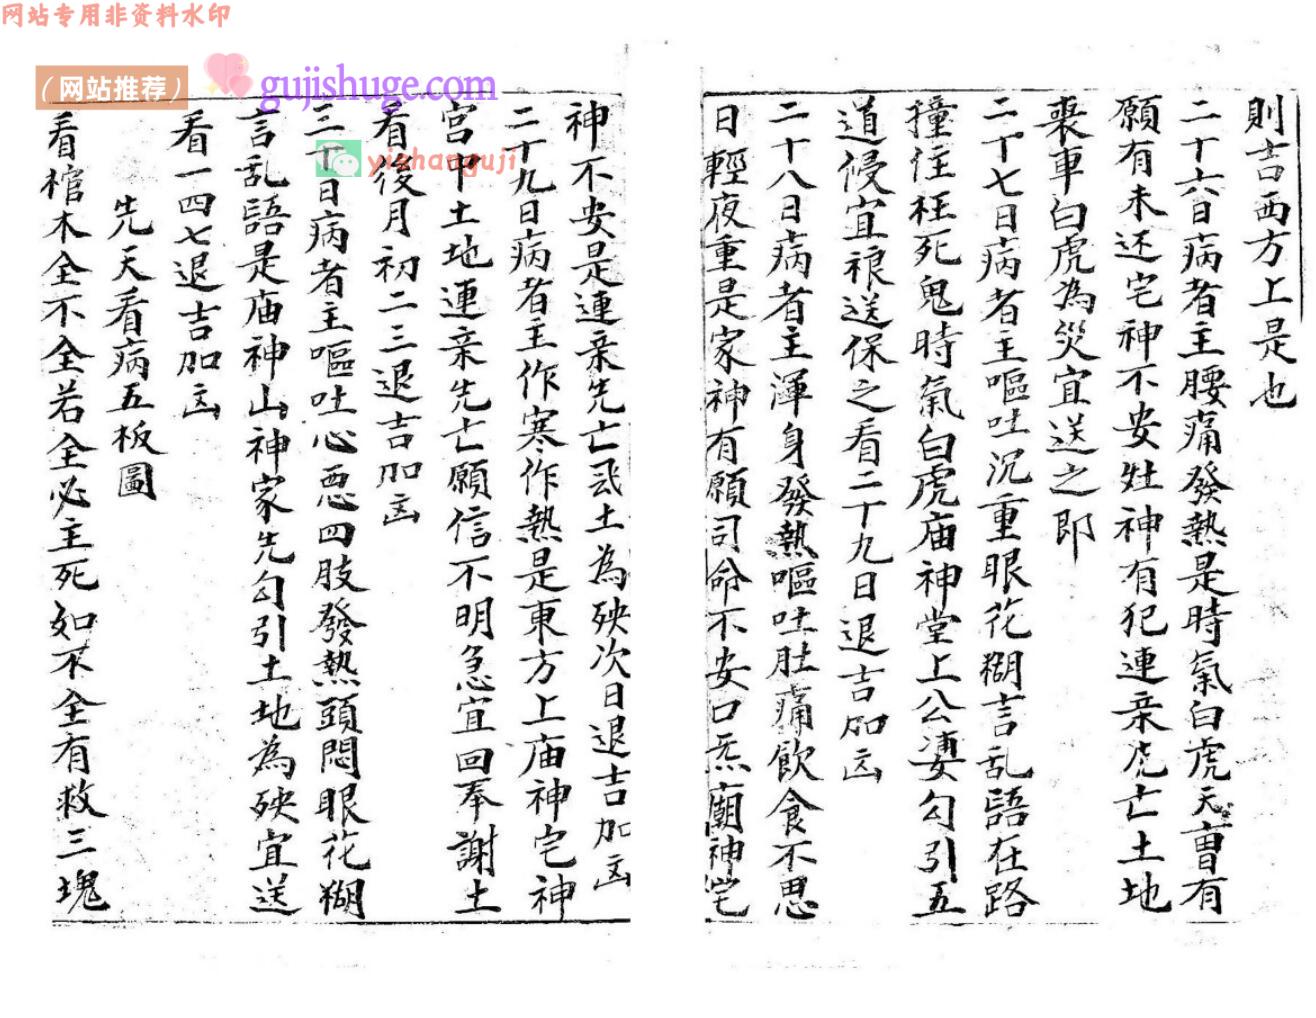 网站专用非资料水印
（网站推荐）
gujishuge.com
yishanguji
則吉西方上是也
二十六日病者主腰痛發熱是時氣白虎天曺有
願有未还宅神不安灶神有犯連亲虎亡土地
喪車白虎為災宜送之即
二十七日病者主嘔吐沉重眼花糊言乱語在路
撞注枉死鬼時氣白虎庙神堂上公婆勾引五
道侵宜禳送保之看二十九日退吉加凶
二十八日病者主渾身發熱嘔吐肚痛飲食不思
日輕夜重是家神有願司命不安口炁廟神宅
神不安是連亲先亡土為殃次日退吉加凶
二十九日病者主作寒作熱是東方上庙神宅神
宫中土地連亲先亡願信不明急宜回奉謝土
看後月初二三退吉加凶
三十日病者主嘔吐心悪四肢發熱頭悶眼花糊
言乱語是庙神山神家先勾引土地為殃宜送
看一四七退吉加凶
先天看病五板圖
看棺木全不全若全必主死如不全有救三塊